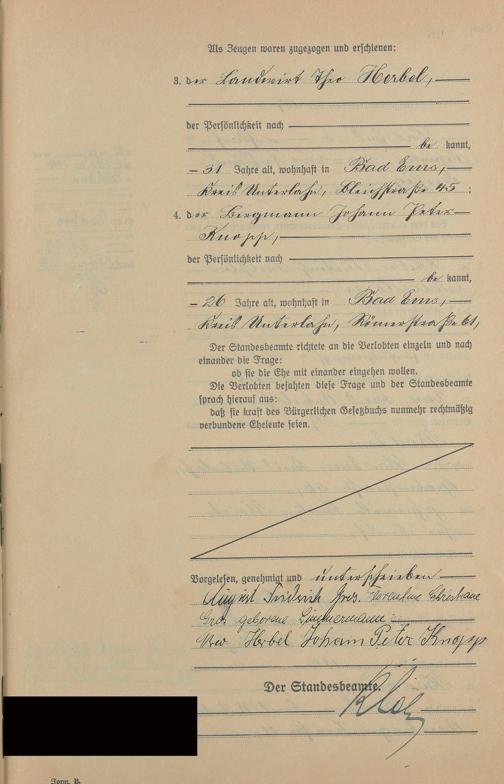 Als Zeugen waren zugezogen und erschienen:
3. der Landwirt Theo Herbel,
der Persönlichkeit nach
be kannt,
31 Jahre alt, wohnhaft in Bad Ems,
Kreis Unterlahn, Bleichstraße 45;
4. der Bergmann Johann Peter
Knopp,
der Persönlichkeit nach
be kannt,
26 Jahre alt, wohnhaft in Bad Ems,
Kreis Unterlahn, Römerstraße 61,
Der Standesbeamte richtete an die Verlobten einzeln und nach
einander die Frage:
ob sie die Ehe mit einander eingehen wollen.
Die Verlobten bejahten diese Frage und der Standesbeamte
sprach hierauf aus:
daß sie kraft des Bürgerlichen Gesetzbuchs nunmehr rechtmäßig
verbundene Eheleute seien.
Vorgelesen, genehmigt und unterschrieben
August Fridrich Florentine Christiane
geborene Zimmermann
Herbel Johann Peter Knopp
Der Standesbeamte.
Form. B.